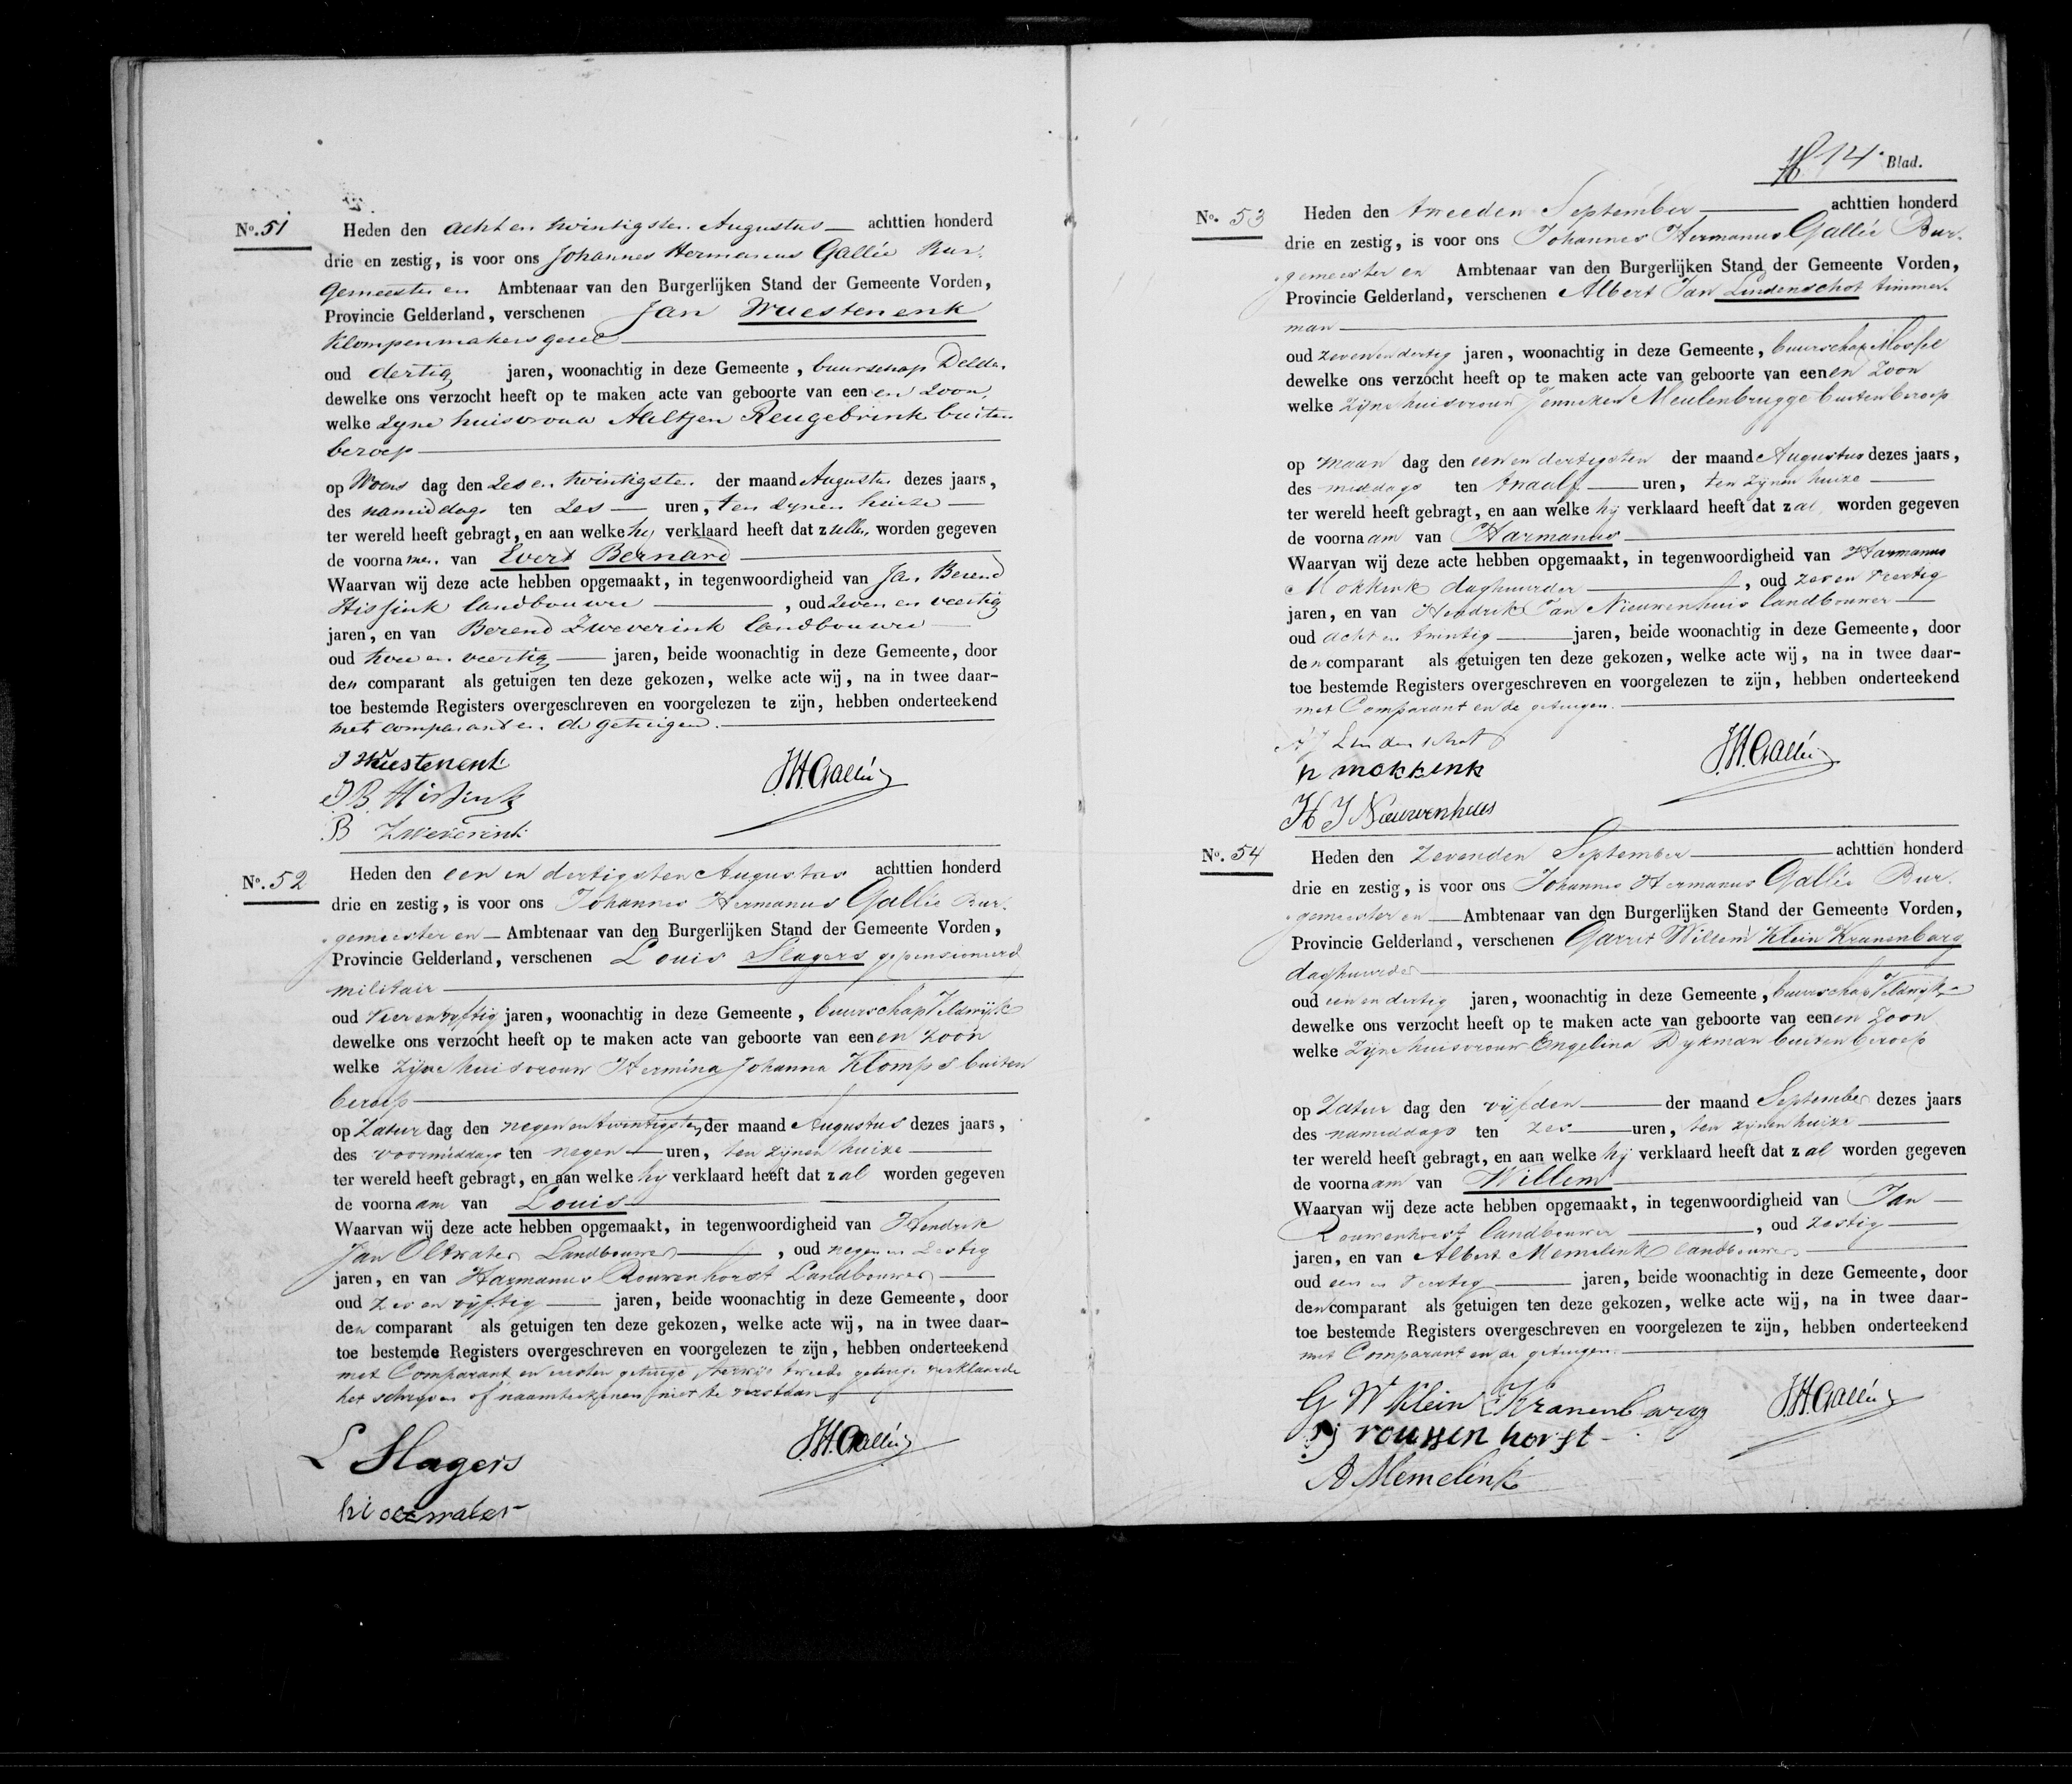 No. 51
Heden den acht en twintigsten Augustus — achttien honderd
drie en zestig, is voor ons Johannes Hermanus Gallée Bur-
gemeester en Ambtenaar van den Burgerlijken Stand der Gemeente Vorden,
Provincie Gelderland, verschenen Jan Wuestenenk
Klompenmakersgezel
oud dertig jaren, woonachtig in deze Gemeente, buurschap Delden
dewelke ons verzocht heeft op te maken acte van geboorte van eenen zoon,
welke zyne huisvrouw Aeltjen Reugebrink buiten
beroep
op Woens dag den zes en twintigsten der maand Augustus dezes jaars,
des namiddags ten zes uren, ten zynen huize
ter wereld heeft gebragt, en aan welke hy verklaard heeft dat zullen worden gegeven
de voornamen van Evert Bernard
Waarvan wij deze acte hebben opgemaakt, in tegenwoordigheid van Jan Berend
Hissink landbouwer, oud zeven en veertig
jaren, en van Berend Zweverink landbouwer
oud twee en veertig jaren, beide woonachtig in deze Gemeente, door
den comparant als getuigen ten deze gekozen, welke acte wij, na in twee daar-
toe bestemde Registers overgeschreven en voorgelezen te zijn, hebben onderteekend
met comparant en de getuigen.
J Wuestenenk
JHGallée
JB Hissink
B Zweverink
No. 52
Heden den een en dertigsten Augustus achttien honderd
drie en zestig, is voor ons Johannes Hermanus Gallée Bur-
gemeester en — Ambtenaar van den Burgerlijken Stand der Gemeente Vorden,
Provincie Gelderland, verschenen Louis Slagers gepensioneerd
militair
oud vier en vyftig jaren, woonachtig in deze Gemeente, buurschap Veldwijk
dewelke ons verzocht heeft op te maken acte van geboorte van eenen zoon
welke zijne huisvrouw Hermina Johanna Klomps buiten
beroep
op Zatur dag den negen en twintigsten der maand Augustus dezes jaars,
des voormiddags ten negen uren, ten zijnen huize
ter wereld heeft gebragt, en aan welke hy verklaard heeft dat zal worden gegeven
de voornaam van Louis
Waarvan wij deze acte hebben opgemaakt, in tegenwoordigheid van Hendrik
Jan Oltwater Landbouwer, oud negen en zestig
jaren, en van Harmanus Rouwenhorst Landbouwer
oud zes en vijftig jaren, beide woonachtig in deze Gemeente, door
den comparant als getuigen ten deze gekozen, welke acte wij, na in twee daar-
toe bestemde Registers overgeschreven en voorgelezen te zijn, hebben onderteekend
met Comparant en eersten getuige terwijl tweede getuige verklaarde
het schrijven of naamteekenen niet te verstaan
L Slagers
JHGallée
14e Blad.
No. 53
Heden den tweeden September achttien honderd
drie en zestig, is voor ons Johannes Hermanus Gallée Bur-
gemeester en Ambtenaar van den Burgerlijken Stand der Gemeente Vorden,
Provincie Gelderland, verschenen Albert Jan Lindenschot timmer-
man
oud zeven en dertig jaren, woonachtig in deze Gemeente, buurschap Mossel
dewelke ons verzocht heeft op te maken acte van geboorte van eenen zoon
welke zijne huisvrouw Jenneken Meulenbrugge buiten beroep
op maan dag den een en dertigsten der maand Augustus dezes jaars,
des middags ten twaalf uren, ten zijnen huize
ter wereld heeft gebragt, en aan welke hy verklaard heeft dat zal worden gegeven
de voornaam van Harmanus
Waarvan wij deze acte hebben opgemaakt, in tegenwoordigheid van Harmanus
Mokkink daghuurder, oud zeven veertig
jaren, en van Hendrik Jan Nieuwenhuis landbouwer
oud acht en twintig jaren, beide woonachtig in deze Gemeente, door
den comparant als getuigen ten deze gekozen, welke acte wij, na in twee daar-
toe bestemde Registers overgeschreven en voorgelezen te zijn, hebben onderteekend
met Comparant en de getuigen.
AJ Lindenschot
JHGallée
h mokkink
HJ Nieuwenhuis
No. 54
Heden den zevenden September achttien honderd
drie en zestig, is voor ons Johannes Hermanus Gallée Bur-
gemeester en — Ambtenaar van den Burgerlijken Stand der Gemeente Vorden,
Provincie Gelderland, verschenen Garrit Willem Klein Kranenbarg
daghuurder
oud een en dertig jaren, woonachtig in deze Gemeente, buurschap Veldwijk
dewelke ons verzocht heeft op te maken acte van geboorte van eenen zoon
welke zijne huisvrouw Engelina Dykman buiten beroep
op Zatur dag den vijfden der maand September dezes jaars
des namiddags ten zes uren, ten zijnen huize
ter wereld heeft gebragt, en aan welke hij verklaard heeft dat zal worden gegeven
de voornaam van Willem
Waarvan wij deze acte hebben opgemaakt, in tegenwoordigheid van Jan
Rouwenhorst landbouwer, oud zestig
jaren, en van Albert Memelink landbouwer
oud een en veertig jaren, beide woonachtig in deze Gemeente, door
den comparant als getuigen ten deze gekozen, welke acte wij, na in twee daar-
toe bestemde Registers overgeschreven en voorgelezen te zijn, hebben onderteekend
met Comparant en de getuigen.
G W Klein Kranenbarg
JHGallée
J rouwenhorst
A Memelink